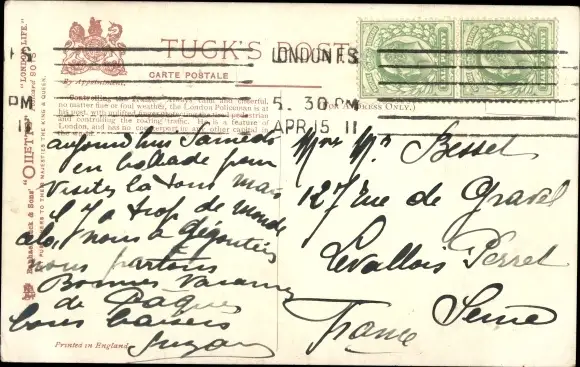 TUCK'S POST
CARTE POSTALE
By Appointment.
(FOR ADDRESS ONLY.)
LONDON F.S.
5. 30 PM
APR 15 11
F.S
PM
11
"LONDON LIFE."
Postcard 90
"OILETTE"
Raphael Tuck & Sons'
TO THEIR MAJESTIES THE KING & QUEEN.
always calm and cheerful,
no matter fine or foul weather, the London Policeman is at
and controlling the roading traffic is a feature of
London, and has no counterpart in any other capital
aujourd'hui Samedi
en ballade pour
visiter la tous mais
il y a trop de monde
alors nous a dégoutées
nous partons
Bonnes Vacances
de Pâques
bons baisers
Suzanne
Mme
Besset
127 rue de Gravel
Levallois Perret
Seine
France
Printed in England.